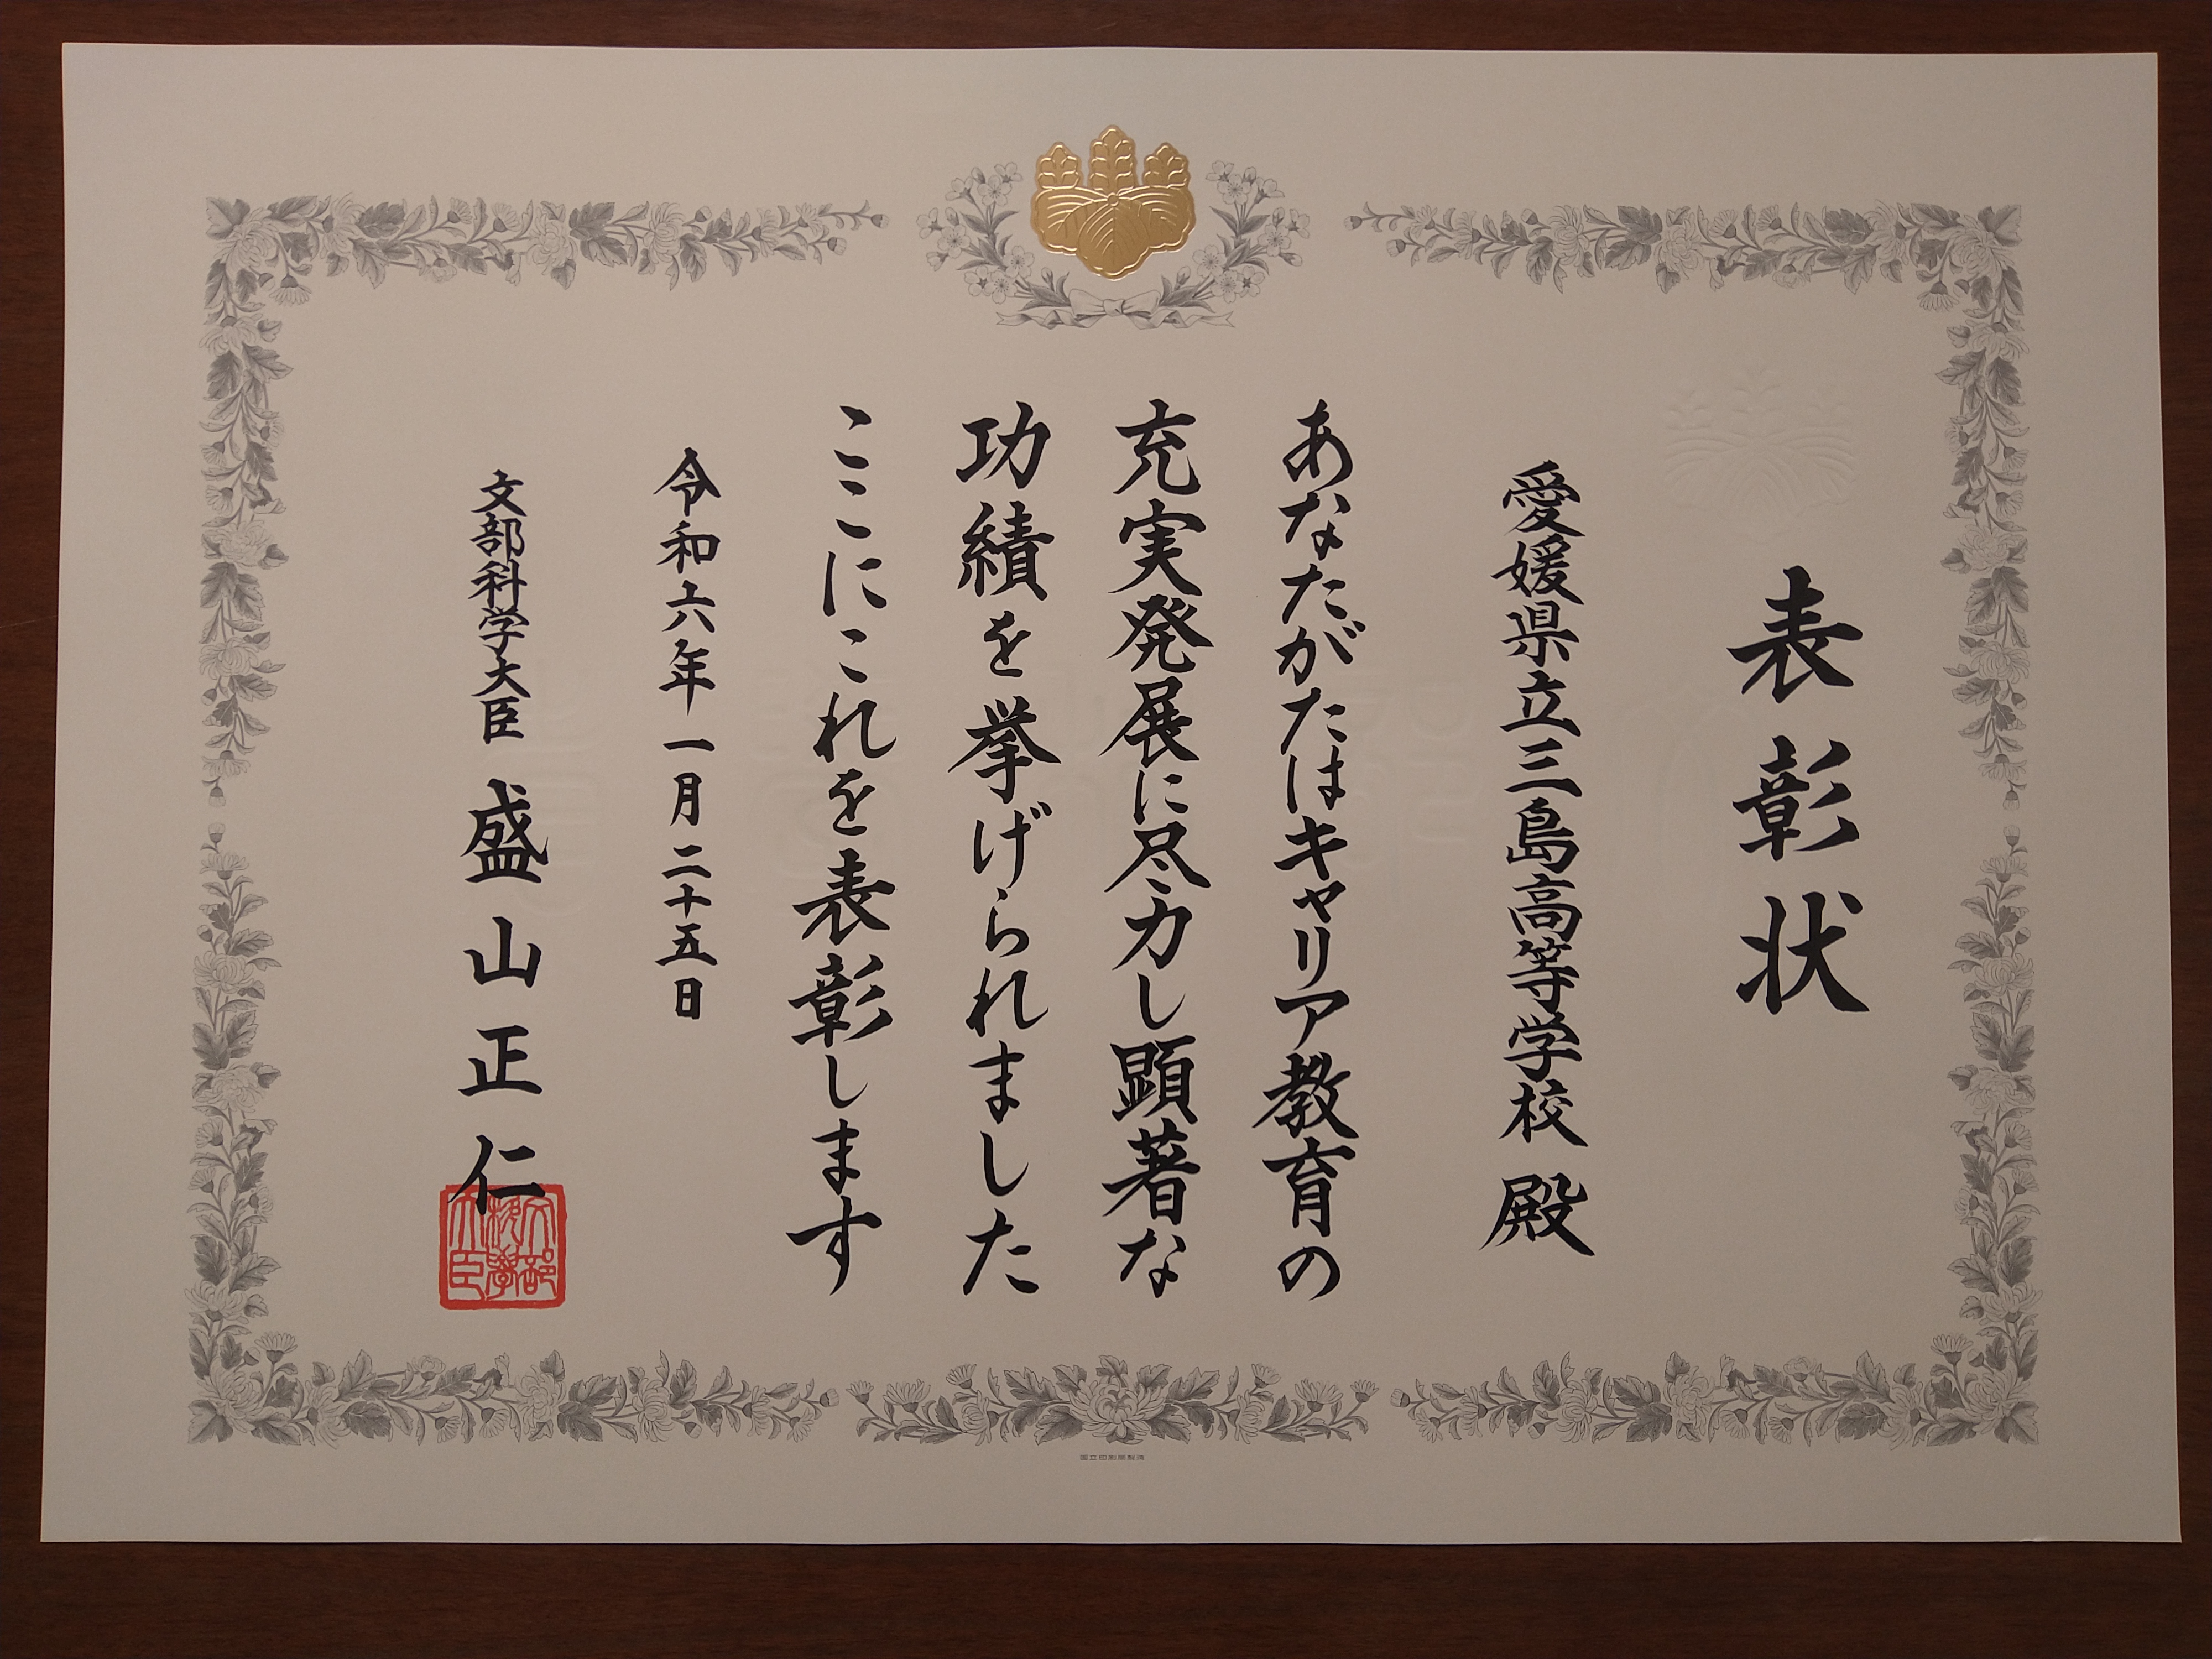 表彰状
愛媛県立三島高等学校 殿
あなたがたはキャリア教育の
充実発展に尽力し顕著な
功績を挙げられました
ここにこれを表彰します
令和六年一月二十五日
文部科学大臣 盛山正仁
文部
科学
大臣
国立印刷局製造